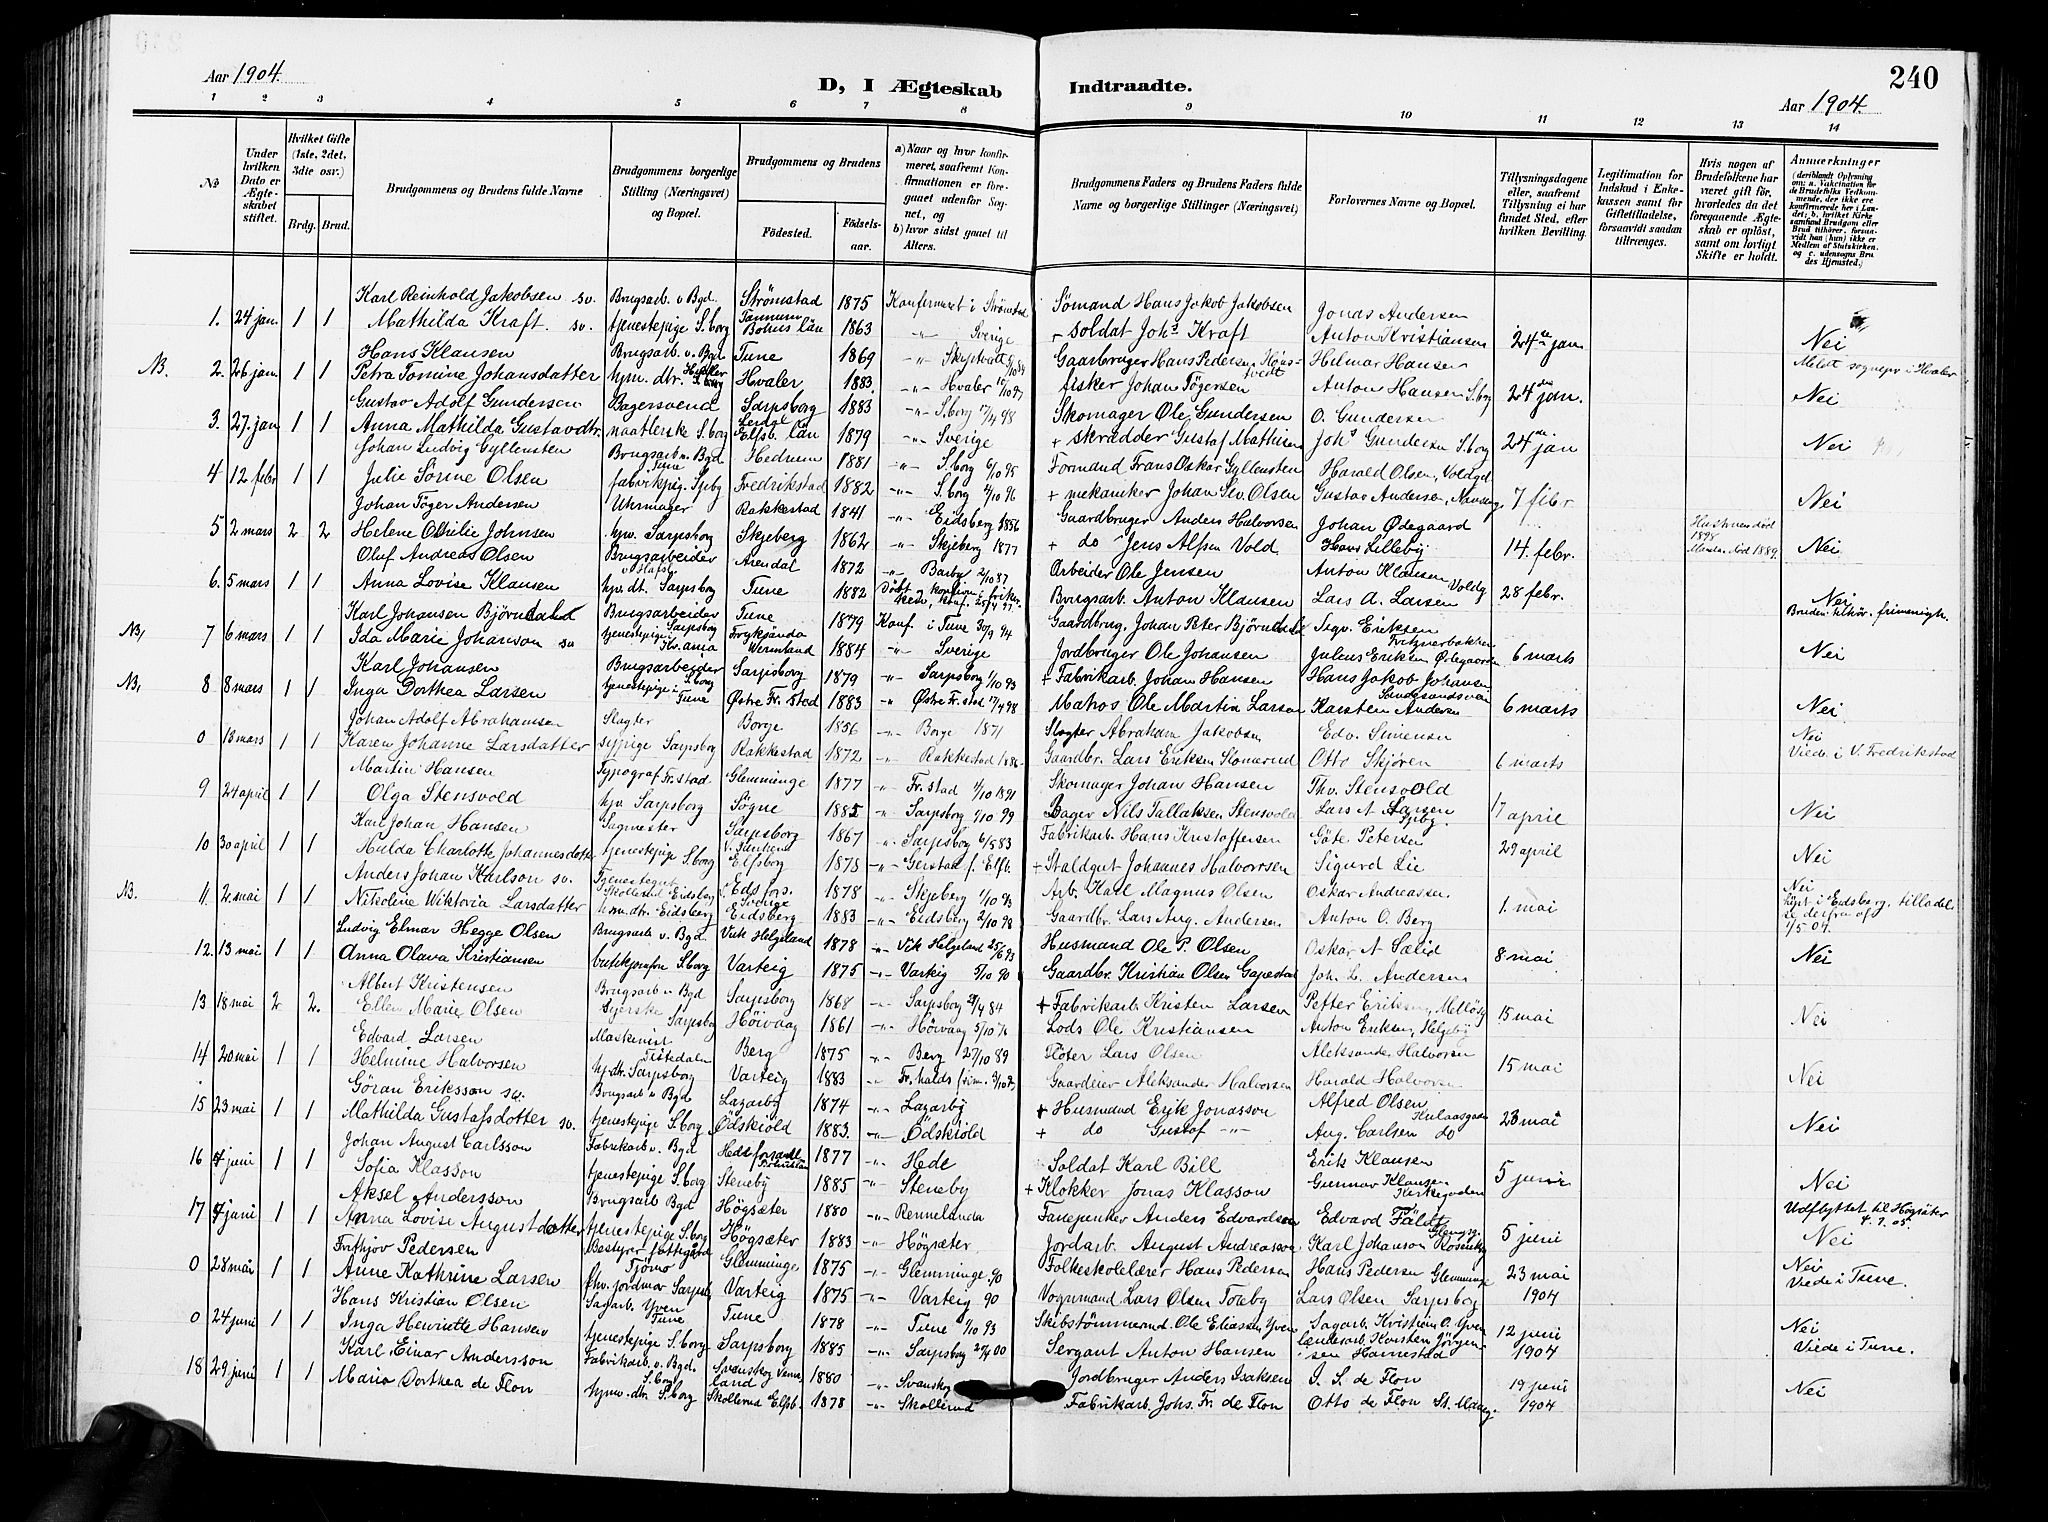 Aar 1904.
D, I Ægteskab Indtraadte.
240
Aar 1904.
1 2 3 4 5 6 7 8 9 10 11 12 13 14
No
Under hvilken Dato er Ægteskabet stiftet.
Hvilket Gifte (1ste, 2det, 3die osv.)
Brdg. Brud.
Brudgommens og Brudens fulde Navne
Brudgommens borgerlige Stilling (Næringsvei) og Bopæl.
Brudgommens og Brudens
Fødested. Fødselsaar.
a) Naar og hvor konfirmeret, saafremt Konfirmationen er foregaaet udenfor Sognet, og
b) hvor sidst gaaet til Alters.
Brudgommens Faders og Brudens Faders fulde Navne og borgerlige Stillinger (Næringsvei)
Forlovernes Navne og Bopæl.
Tillysningsdagene eller, saafremt Tillysning ei har fundet Sted, efter hvilken Bevilling.
Legitimation for Indskud i Enkekassen samt for Giftetilladelse, forsaavidt saadan tiltrænges.
Hvis nogen af Brudefolkene har været gift før, hvorledes da det foregaaende Ægteskab er opløst, samt om lovligt Skifte er holdt.
Anmærkninger (deriblandt Oplysning om: a. Vakcination for de Brudefolks Vedkommende, der ikke ere konfirmerede her i Landet; b. hvilket Kirkesamfund Brudgom eller Brud tilhører, forsaavidt han (hun) ikke er Medlem af Statskirken, og c. udensogns Brudes Hjemsted.)
Karl Reinhold Jakobsen sv. Brugsarb. v Bgd. Strømstad 1875 Konfirmeret i Strømstad Sømand Hans Jakob Jakobsen Jonas Andersen
1. 24 jan. 1 1 Mathilda Kraft. sv. tjenestepige S.borg Tannum Bohus län 1863 -"- Sverige soldat Johs Kraft Anton Kristiansen 24de jan Nei
Hans Klausen Brugsarb. v Bgd Tune 1869 -"- Skiptvedt Gaarbruger Hans Pedersen Hilmar Hansen
NB. 2. 26 jan. 1 1 Petra Tomine Johansdatter hjm. dtr. S.borg Hvaler 1883 -"- Hvaler fisker Johan Tøgersen Anton Hansen S.borg 24de jan. Nei
Gustav Adolf Gundersen Bagersvend Sarpsborg 1883 -"- S.borg 17/4 98 Skomager Ole Gundersen O. Gundersen
3. 27. jan 1 1 Anna Mathilda Gustavdtr. naatlerske S.borg Elfsb. län 1879 -"- Sverige + skrædder Gustaf Mathisen Johs Gundersen S.borg 24de jan Nei
Johan Ludvig Gyllensten Brugsarb. v. Bgd Tune Hedrum 1881 -"- S.borg 6/10 95 Formand Frans Oskar Gyllensten Harald Olsen, Voldgd
4 12 febr 1 1 Julie Sørine Olsen fabrikpig. Spbg Fredrikstad 1882 -"- S.borg 4/10 96 + mekaniker Johan Sev. Olsen Gustav Andersen 7 febr Nei
Johan Tøger Andersen Uhrmager Rakkestad 1841 -"- Eidsberg 1856 Gaardbruger Anders Halvorsen Johan Ødegaard
5 2 mars 2 2 Helene Othilie Johnsen hjv. Sarpsborg Skjeberg 1862 -"- Skjeberg 1877 + do Jens Alfsen Vold Hans Lilleby 14. febr. Hustruen død 1898 Manden død 1889. Nei
Oluf Andreas Olsen Brugsarbeider v Hafsl. Arendal 1872 -"- Barby 2/10 87 Arbeider Ole Jensen Anton Klausen
6. 5 mars 1 1 Anna Lovise Klausen hjv. dt. Sarpsborg Tune 1882 Brugsarb. Anton Klausen Lars A. Larsen Voldg 28 febr. Nei Bruden tilhør. frimenigh.
Karl Johansen Bjørndalen Brugsarbeider Tune 1879 Konf. i Tune 30/9 94 Gaardbrug. Johan Peter Bjørndalen Sigv. Eriksen
NB, 7 6 mars 1 1 Ida Marie Johanson sv tjenestepige Sarpsborg Fryksända Wermland 1884 -"- Sverige Jordbruger Ole Johansen Julius Eriksen Ødegaarden 6 marts Nei
Karl Johansen Brugsarbeider S.borg Sarpsborg 1879 -"- Sarpsborg 1/10 93 + Fabrikarb. Johan Hansen Hans Jakob Johansen
NB, 8 8 mars 1 1 Inga Dorthea Larsen tjenestepige i Tune Østre Fr.stad 1883 -"- Østre Fr.stad 17/4 98 Matros Ole Martin Larsen Karsten Andersen 6 marts Nei
Johan Adolf Abrahamsen Slagter Borge 1856 -"- Borge 1871 Slagter Abraham Jakobsen Edv. Simensen
0 18 mars 1 1 Karen Johanne Larsdatter sypige Sarpsborg Rakkestad 1872 -"- Rakkestad 1886 Gaardbr. Lars Eriksen Slomerud Otto Skjøren 6 marts Nei Viede i V. Fredrikstad
Martin Hansen Typograf Fr.stad Glemminge 1877 -"- Fr.stad 1/10 1891 Skomager Johan Hansen Thv. Stensvold
9 24 april 1 1 Olga Stensvold hjv. Sarpsborg Søgne 1885 -"- Sarpsborg 1/10 99 Bager Nils Tallaksen Stensvold Lars A. Larsen Spbg. 17 april Nei
Karl Johan Hansen Sagmester Sarpsborg 1867 -"- Sarpsborg 6/5 83 Fabrikarb. Hans Kristoffersen Göte Petersen
10 30 april 1 1 Hulda Charlotte Johannesdotter tjenestepige S.borg Elfsborg 1873 -"- Gerstad f. Elfb. + Staldgut Johannes Halvorsen Sigurd Lie 29 april Nei
Anders Johan Karlson sv. Tjenestegut Eidsberg Eds fors. Sverige 1878 -"- Skjeberg 1/10 93 Arb. Karl Magnus Olsen Oskar Andreassen
NB. 11. 2. mai 1 1 Nikoline Wiktoria Larsdatter hjm. dtr. Eidsberg Eidsberg 1883 -"- Eidsberg 2/10 98 Gaardbr. Lars Aug. Andersen Anton O. Berg 1. mai Nei lyst i Eidsberg, tilladelse derfra af 1/5 04.
Ludvig Elmar Hegge Olsen Brugsarb v. Bgd. Vik Helgeland 1878 -"- Vik Helgeland 25/6 93 Husmand Ole P. Olsen Oskar A Sælid
12. 13 mai 1 1 Anna Olava Kristiansen butikjomfru S.borg Varteig 1875 -"- Varteig 5/10 90 Gaardbr. Kristian Olsen Joh. L. Andersen 8 mai Nei
Albert Kristensen Brugsarb v Bgd Sarpsborg 1868 -"- Sarpsborg 27/4 84 + Fabrikarb. Kristen Larsen Petter Eriksen
13 18 mai 2 2. Ellen Marie Olsen Syerske Sarpsborg Høivaag 1861 -"- Høivaag 5/10 76 Lods Ole Kristiansen Anton Eriksen, Helgeby 15 mai Nei
Edvard Larsen Maskinist Tistedalen Berg 1875 -"- Berg 27/10 89 Fløter Lars Olsen Aleksander Halvorsen
14 20 mai 1 1 Helmine Halvorsen hj.dtr. Sarpsborg Varteig 1883 -"- Fr.halds frim. Gaardeier Aleksander Halvorsen Harald Halvorsen 15 mai Nei
Göran Eriksson sv. Brugsarb v Bgd Lazarby 1874 -"- Lazarby + Husmand Erik Jonasson Alfred Olsen
15 23 mai 1 1 Mathilda Gustafsdotter sv. tjenestepige S.borg Ödskiöld 1883. -"- Ödskiöld + do Gustaf -"- Aug. Carlsen do 23 mai Nei
Johan August Carlsson Fabrikarb v. Bgd Hede 1877 -"- Hede Soldat Karl Bill Erik Klausen
16 4 juni 1 1 Sofia Klasson tjenestepige S.borg Steneby 1885 -"- Steneby + Klokker Jonas Klasson Gunnar Klausen Kirkegaden 5 juni Nei
Aksel Andersson Brugsarb Bgd Högsæter 1880 -"- Rennelanda Fanejunker Anders Edvardson Edvard Fäldt
17 4 juni 1 1 Anna Lovise Augustdotter tjenestepige S.borg Högsæter 1883 -"- Högsæter Jordarb. August Andreasson Karl Johanson 5 juni Udflyttet til Högsäter 4.7.05. Nei
Frithjov Pedersen Bestyrer fattiggård Tjømø Glemminge 1875 -"- Glemminge 90 Folkeskolelærer Hans Pedersen Hans Pedersen Glemminge
0 28 mai 1 1 Anne Kathrine Larsen fhv. jordmor Sarpsb. Varteig 1875 -"- Varteig 90 Vognmand Lars Olsen Toreby Lars Olsen Sarpsborg 23 mai 1904 Nei Viede i Tune.
Hans Kristian Olsen Sagarb. Yven Tune Tune 1878 -"- Tune 1/10 93 Skibstømmermd. Ole Eliassen Yven Sagarb. Kristian O. Yven
0 24 juni 1 1 Inga Henriette Hansen tjenestepige S.borg Sarpsborg 1885 -"- Sarpsborg 00 Sergant Anton Hansen Karsten Jørgensen Hannestad 12 juni 1904 Nei Viede i Tune.
Karl Einar Andersson Fabrikarb. v. Bgd. Svanskog Vermland 1880 -"- Svanskog Jordbruger Anders Isaksen J. S. de Flon
18 29 juni 1 1 Maria Dorthea de Flon hjm. dtr. S.borg Skallerud Elfsb. 1878 -"- Skallerud Fabrikarb. Johs. Fr. de Flon Otto de Flon St. Marg. 19 juni 1904 Nei